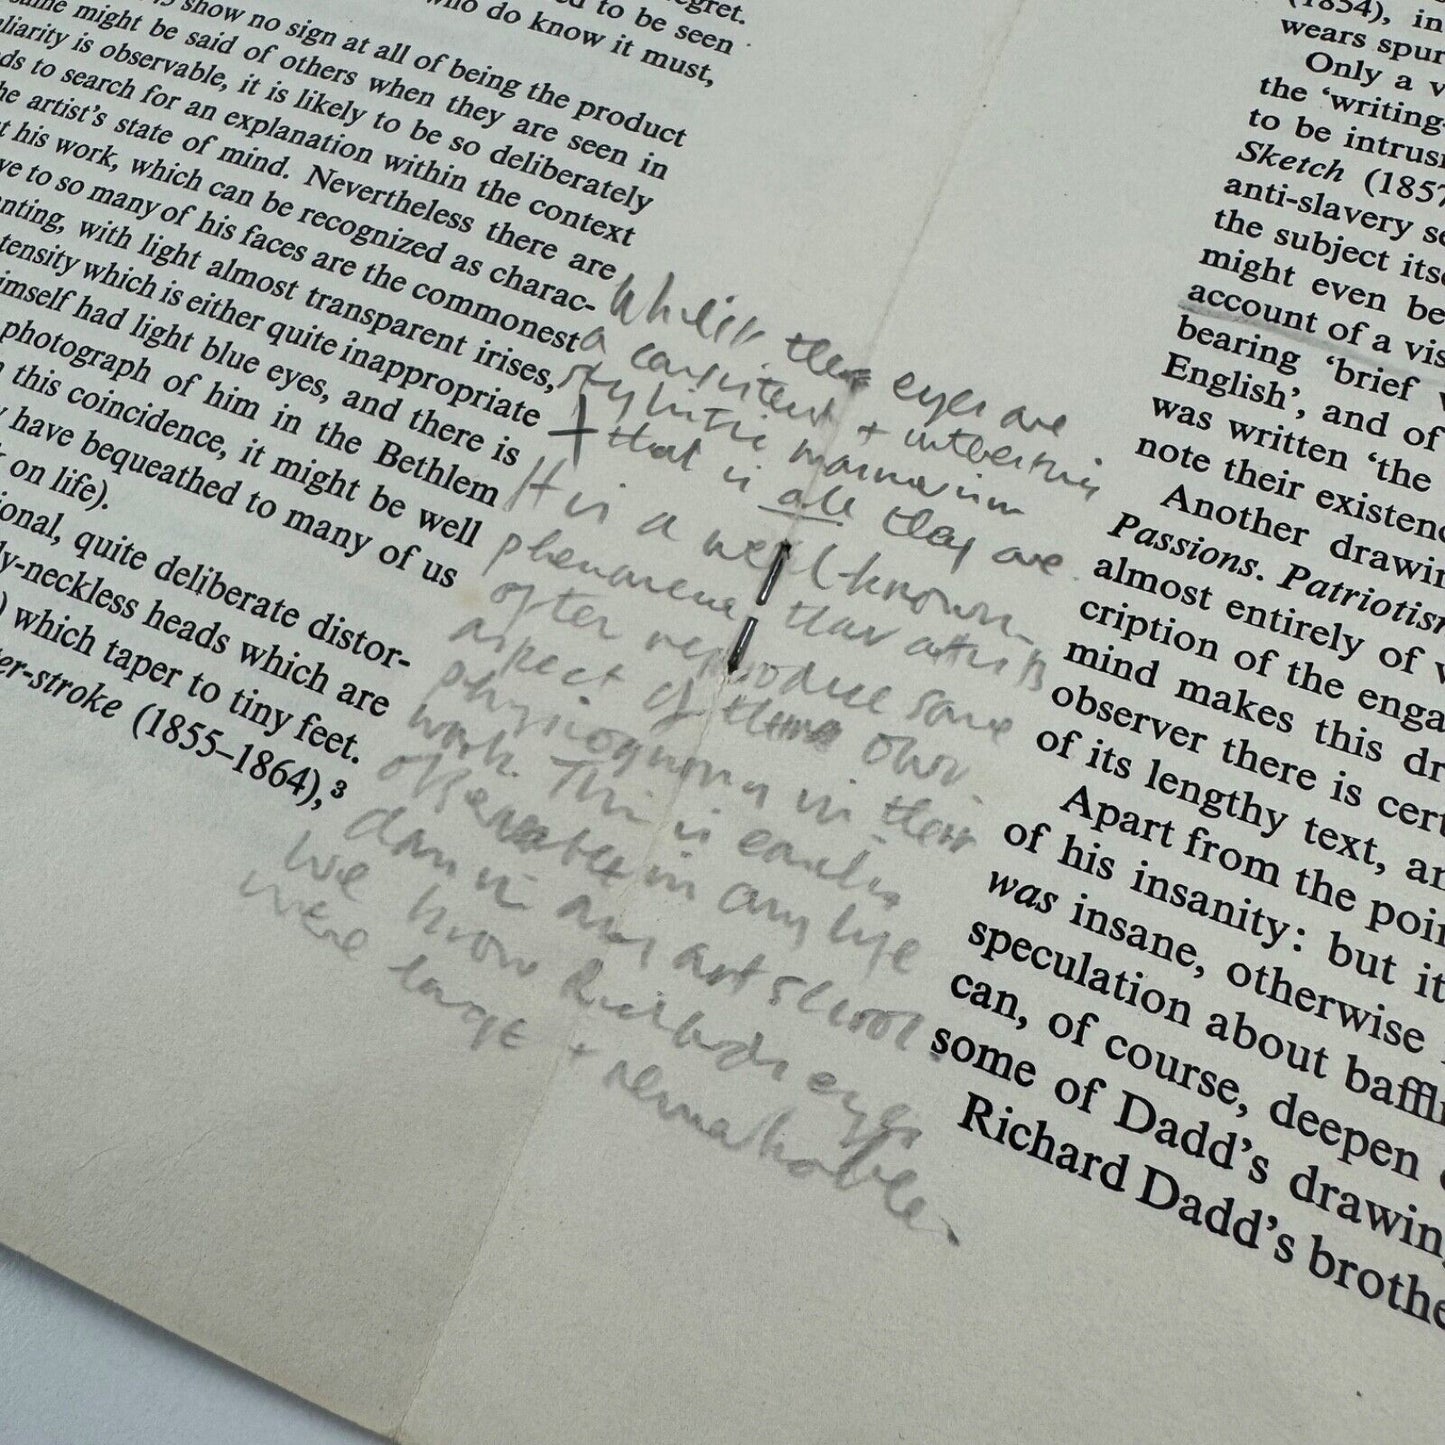 egret.
ed to be seen
who do know it must,
show no sign at all of being the product
same might be said of others when they are seen in
liarity is observable, it is likely to be so deliberately
ds to search for an explanation within the context
he artist's state of mind. Nevertheless there are
t his work, which can be recognized as charac-
ve to so many of his faces are the commonest
nting, with light almost transparent irises,
tensity which is either quite inappropriate
imself had light blue eyes, and there is
photograph of him in the Bethlem
this coincidence, it might be well
have bequeathed to many of us
on life).
ional, quite deliberate distor-
ly-neckless heads which are
) which taper to tiny feet.
ter-stroke (1855–1864),³
Whilst these eyes are
a consistent + interesting
stylistic mannerism
+ that is all they are.
It is a well-known
phenomena that artists
often reproduce some
aspect of their own
physiognomy in their
work. This is easily
observable in any life
class in any art school.
We know Richards eyes
were large + remarkable.
(1854), in
wears spur
Only a v
the 'writing
to be intrusi
Sketch (1857
anti-slavery so
the subject itse
might even be
account of a vis
bearing 'brief
English', and of
was written 'the
note their existenc
Another drawin
Passions. Patriotism
almost entirely of
cription of the enga
mind makes this dr
observer there is cert
of its lengthy text, an
Apart from the poin
of his insanity: but it
was insane, otherwise
speculation about baffli
can, of course, deepen
some of Dadd's drawing
Richard Dadd's brothe